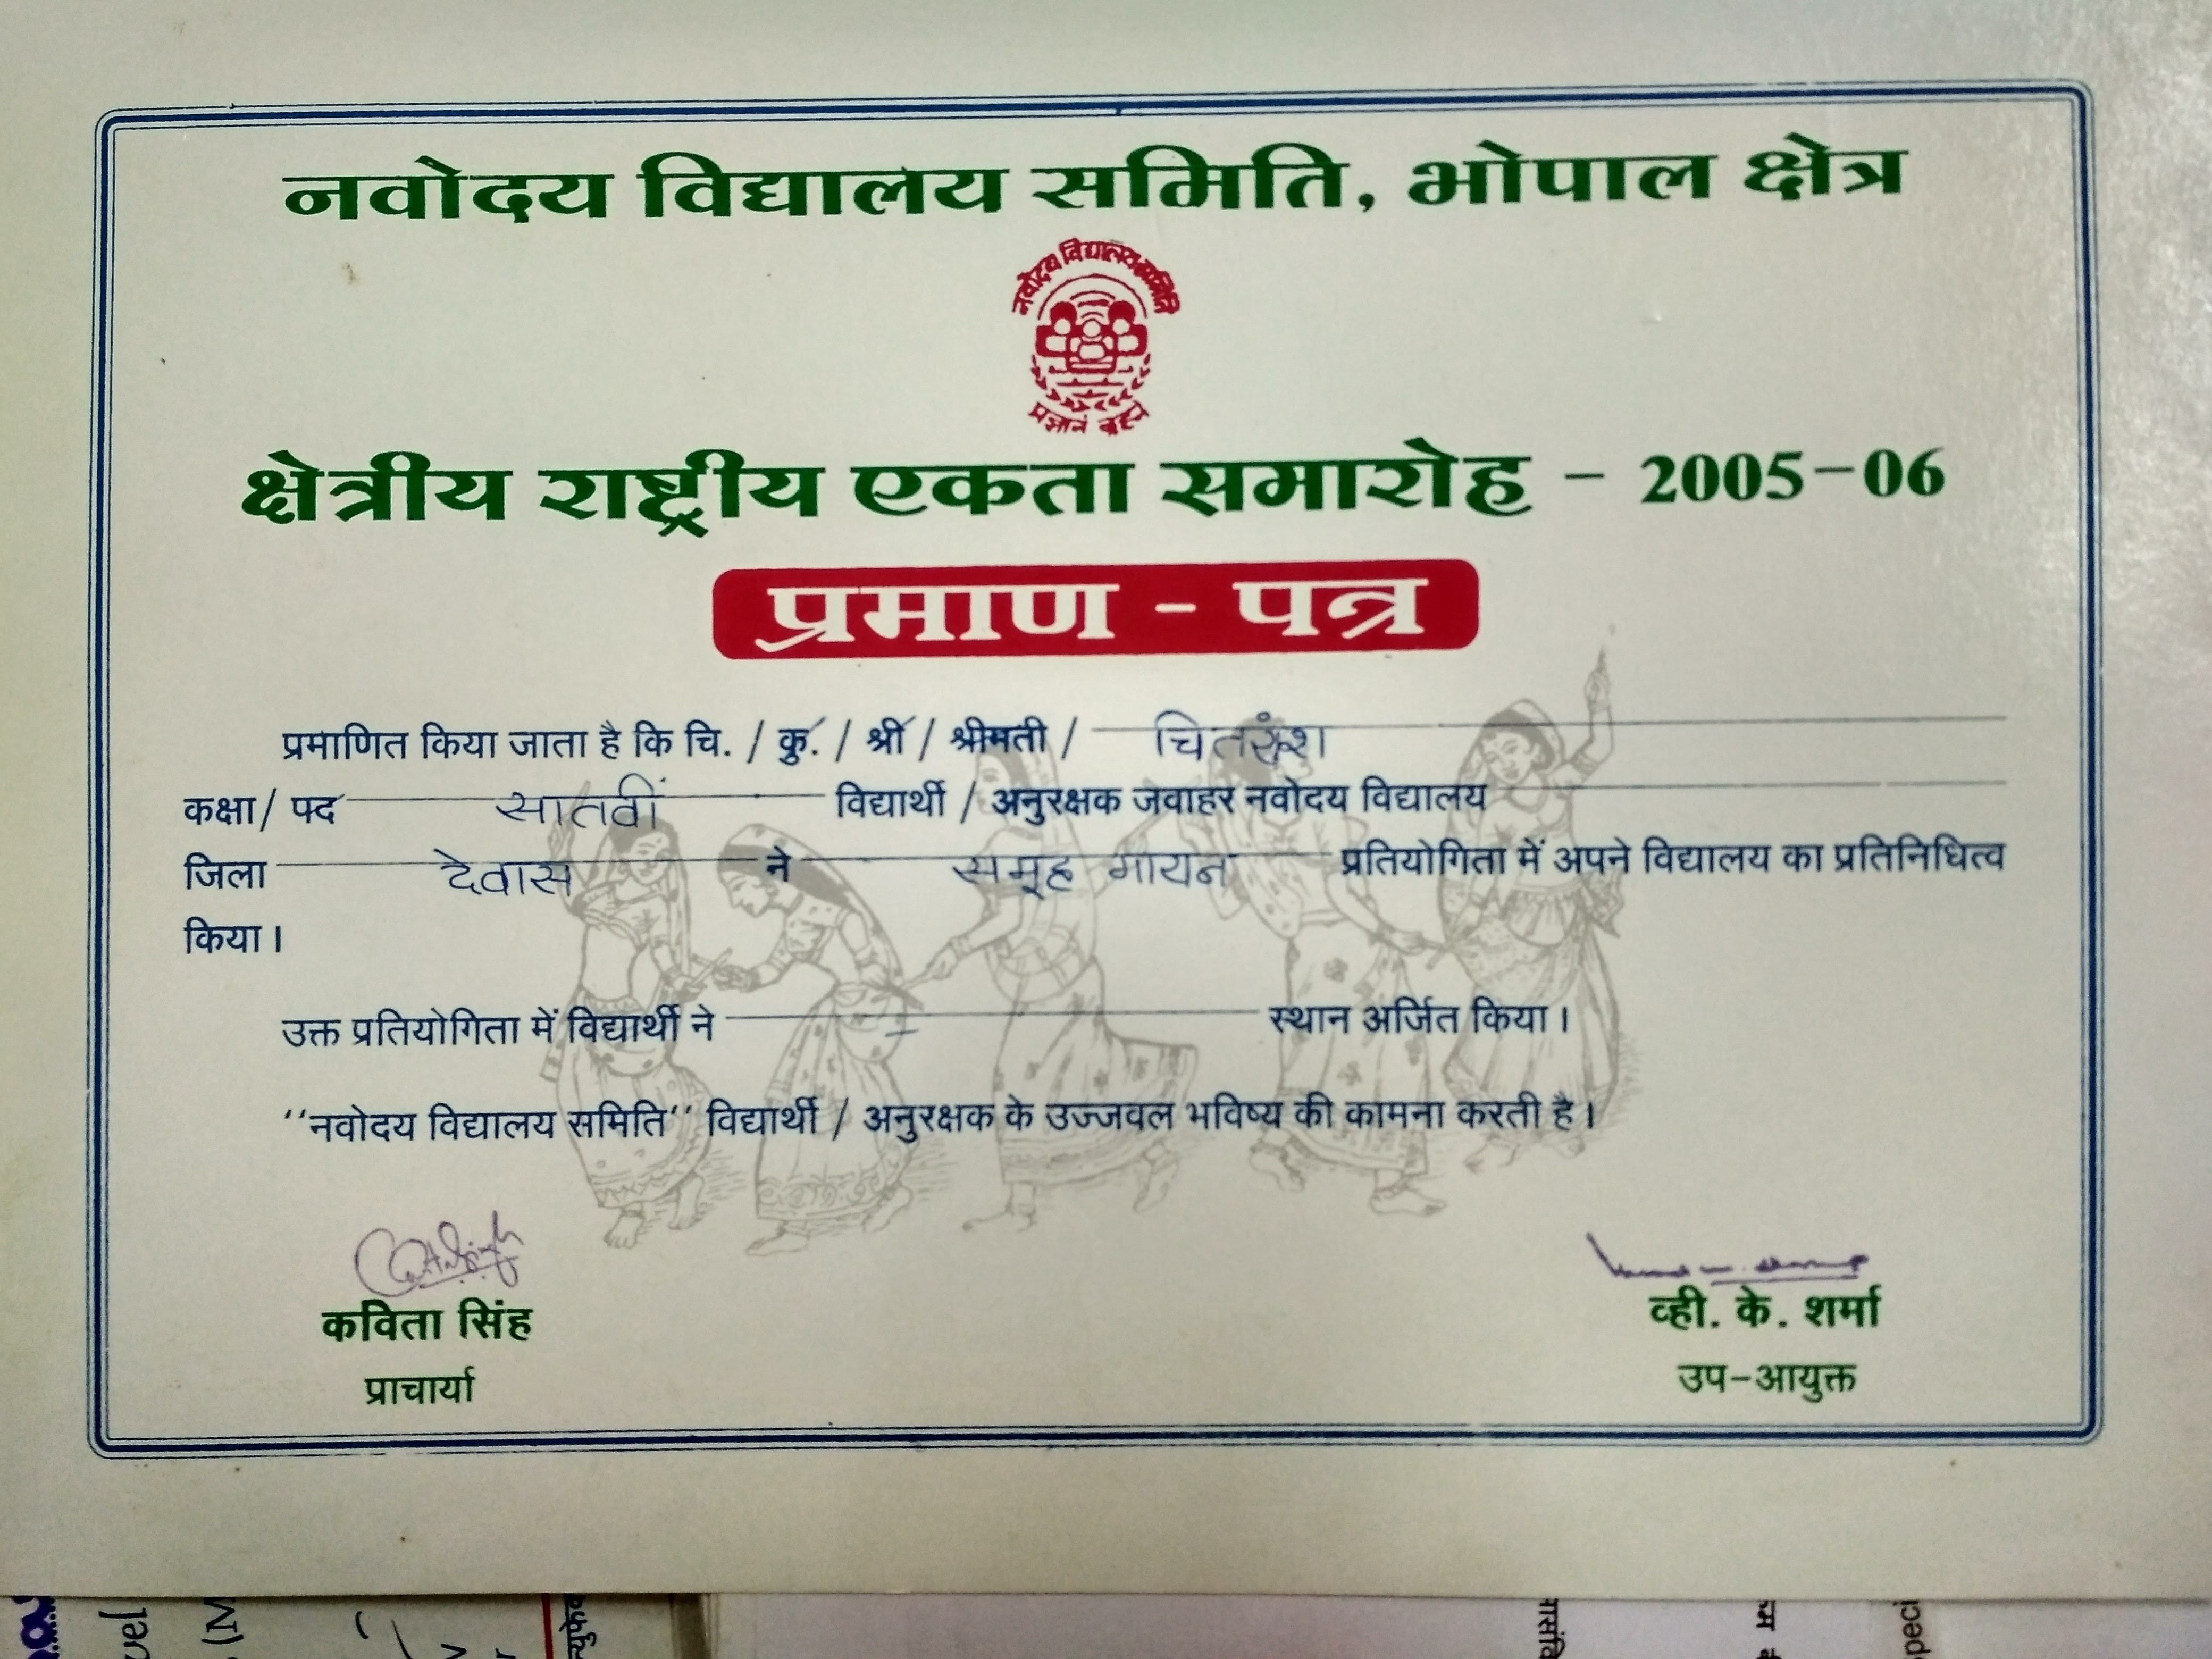 नवोदय विद्यालय समिति, भोपाल क्षेत्र
नवोदय विद्यालय समिति
प्रज्ञानं ब्रह्म
क्षेत्रीय राष्ट्रीय एकता समारोह - 2005-06
प्रमाण - पत्र
प्रमाणित किया जाता है कि चि. / कु. / श्री / श्रीमती /
कक्षा/ पद सातवीं विद्यार्थी / अनुरक्षक जवाहर नवोदय विद्यालय
जिला देवास ने समूह गायन प्रतियोगिता में अपने विद्यालय का प्रतिनिधित्व
किया।
उक्त प्रतियोगिता में विद्यार्थी ने - स्थान अर्जित किया।
‘‘नवोदय विद्यालय समिति’’ विद्यार्थी / अनुरक्षक के उज्जवल भविष्य की कामना करती है।
कविता सिंह
प्राचार्या
व्ही. के. शर्मा
उप-आयुक्त